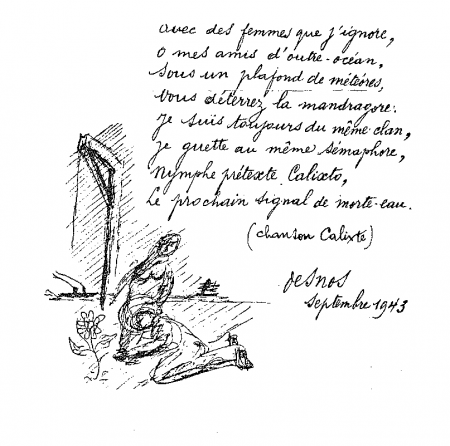 avec des femmes que j'ignore,
O mes amis d'outre-océan,
Sous un plafond de météores,
Vous déterrez la mandragore.
Je suis toujours du même clan,
Je guette au même sémaphore,
Nymphe prétexte Calixto,
Le prochain signal de morte-eau.
(chanson Calixte)
desnos
septembre 1943